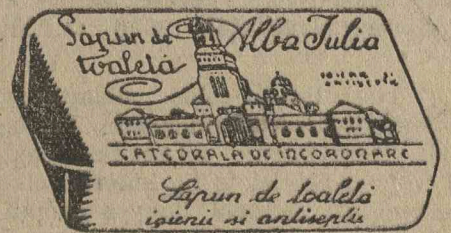 Săpun de Alba Iulia
toaletă
CATEDRALA DE INCORONARE
Săpun de toaletă
igienic si antiseptic